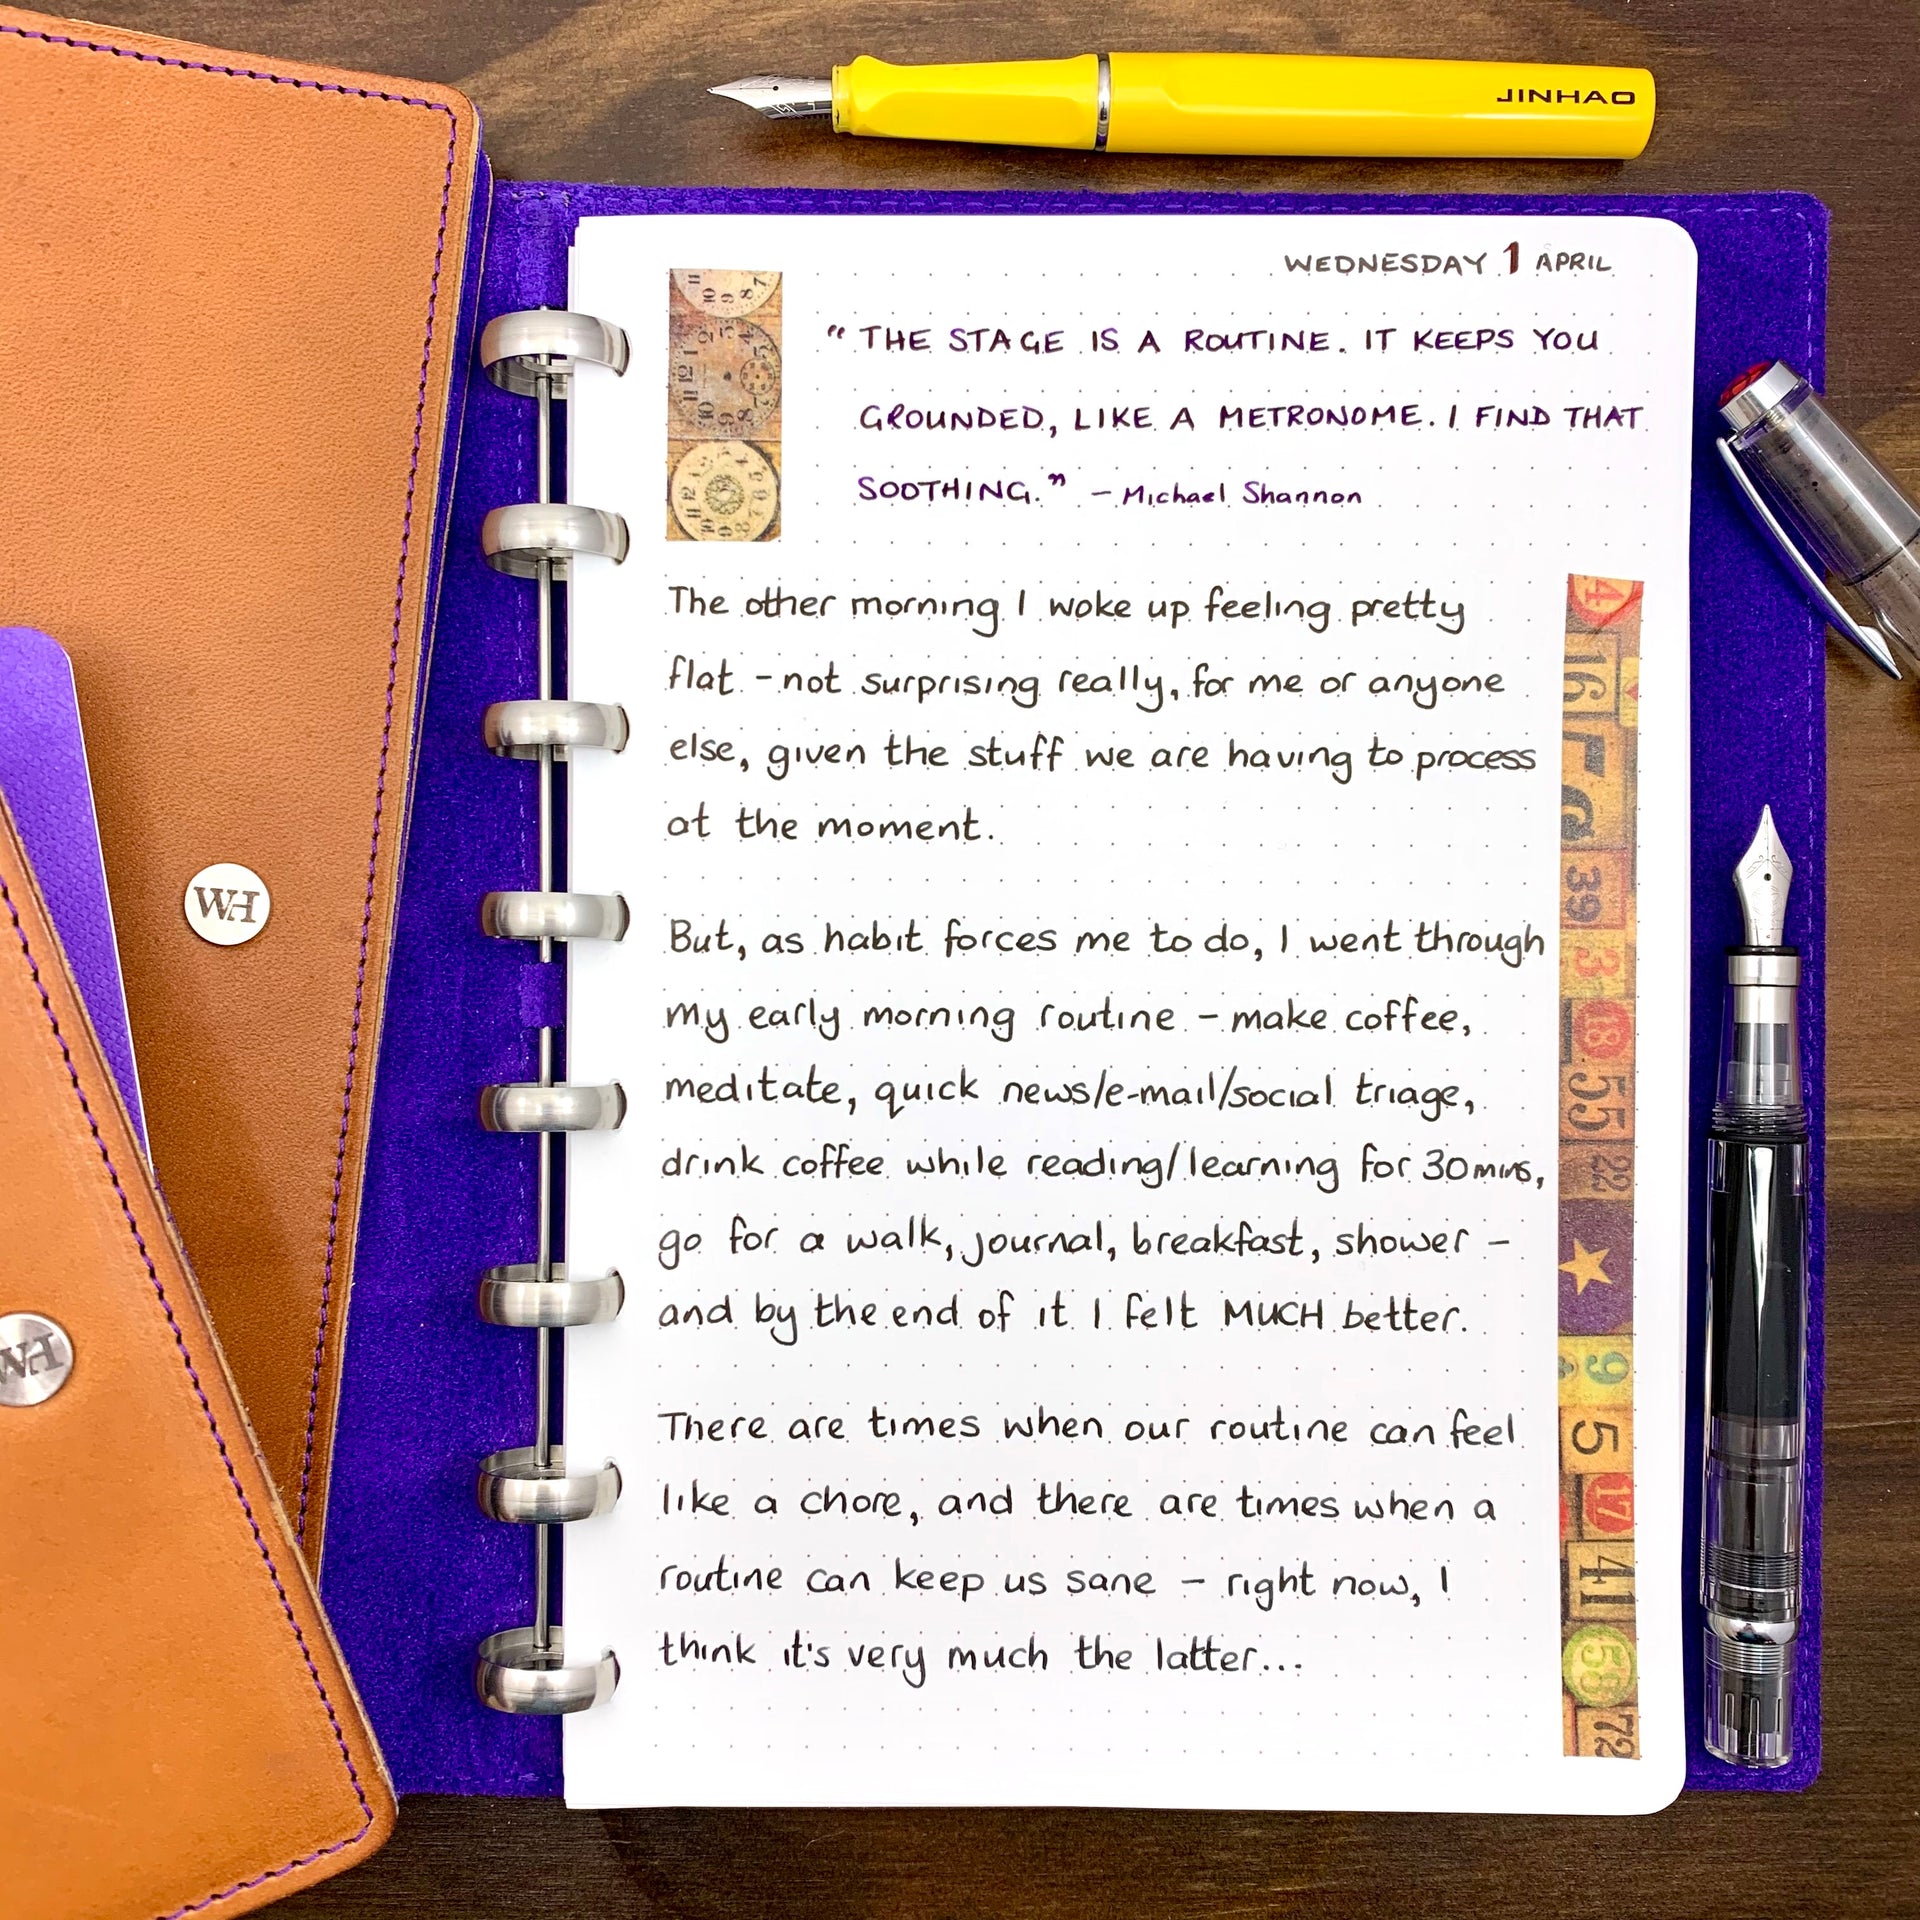 JINHAO
WEDNESDAY 1 APRIL
“ THE STAGE IS A ROUTINE. IT KEEPS YOU
GROUNDED, LIKE A METRONOME. I FIND THAT
SOOTHING.” – Michael Shannon
The other morning I woke up feeling pretty
flat – not surprising really, for me or anyone
else, given the stuff we are having to process
at the moment.
But, as habit forces me to do, I went through
my early morning routine – make coffee,
meditate, quick news/e-mail/social triage,
drink coffee while reading/learning for 30 mins,
go for a walk, journal, breakfast, shower –
and by the end of it I felt MUCH better.
There are times when our routine can feel
like a chore, and there are times when a
routine can keep us sane – right now, I
think it's very much the latter...
WH
WH
4
16
39
3
18
55
22
9
5
17
41
56
72